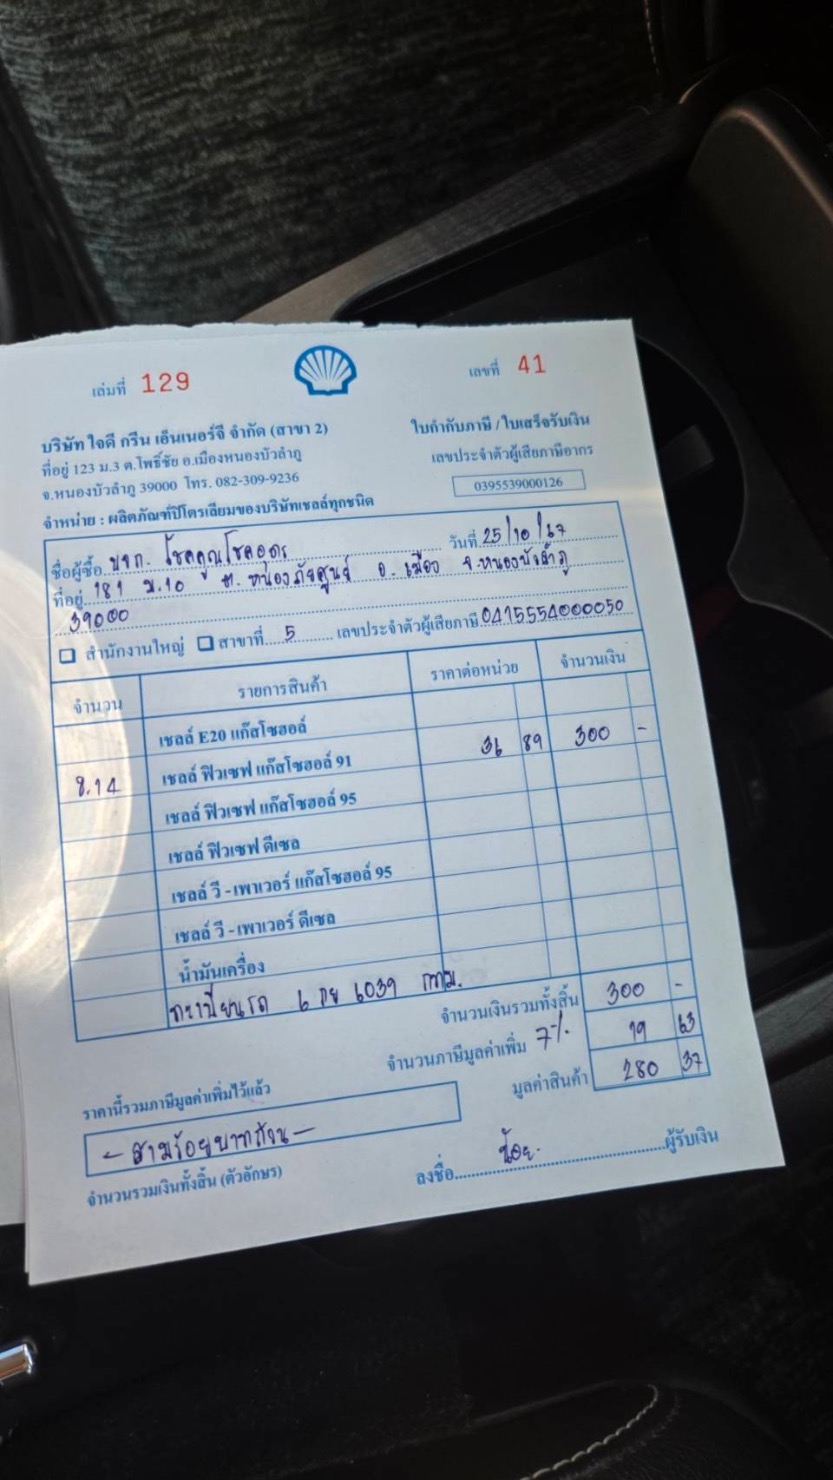 เล่มที่ 129
เลขที่ 41
บริษัท ใจดี กรีน เอ็นเนอร์จี จำกัด (สาขา 2)
ใบกำกับภาษี / ใบเสร็จรับเงิน
ที่อยู่ 123 ม.3 ต.โพธิ์ชัย อ.เมืองหนองบัวลำภู
เลขประจำตัวผู้เสียภาษีอากร
จ.หนองบัวลำภู 39000 โทร. 082-309-9236
0395539000126
จำหน่าย : ผลิตภัณฑ์ปิโตรเลียมของบริษัทเชลล์ทุกชนิด
ชื่อผู้ซื้อ บจก. โชคคูณโชคอุดร วันที่ 25/10/67
ที่อยู่ 181 ม.10 ต. หนองภัยศูนย์ อ. เมือง จ.หนองบัวลำภู
39000
สำนักงานใหญ่ สาขาที่ 5 เลขประจำตัวผู้เสียภาษี 0415554000050
จำนวน รายการสินค้า ราคาต่อหน่วย จำนวนเงิน
เชลล์ E20 แก๊สโซฮอล์
8.14 เชลล์ ฟิวเซฟ แก๊สโซฮอล์ 91 36 89 300 -
เชลล์ ฟิวเซฟ แก๊สโซฮอล์ 95
เชลล์ ฟิวเซฟ ดีเซล
เชลล์ วี - เพาเวอร์ แก๊สโซฮอล์ 95
เชลล์ วี - เพาเวอร์ ดีเซล
น้ำมันเครื่อง
ทะเบียนรถ 6 กย 6039 กทม.
จำนวนเงินรวมทั้งสิ้น 300 -
จำนวนภาษีมูลค่าเพิ่ม 7% 19 63
มูลค่าสินค้า 280 37
ราคานี้รวมภาษีมูลค่าเพิ่มไว้แล้ว
- สามร้อยบาทถ้วน -
จำนวนรวมเงินทั้งสิ้น (ตัวอักษร)
ลงชื่อ น้อย. ผู้รับเงิน